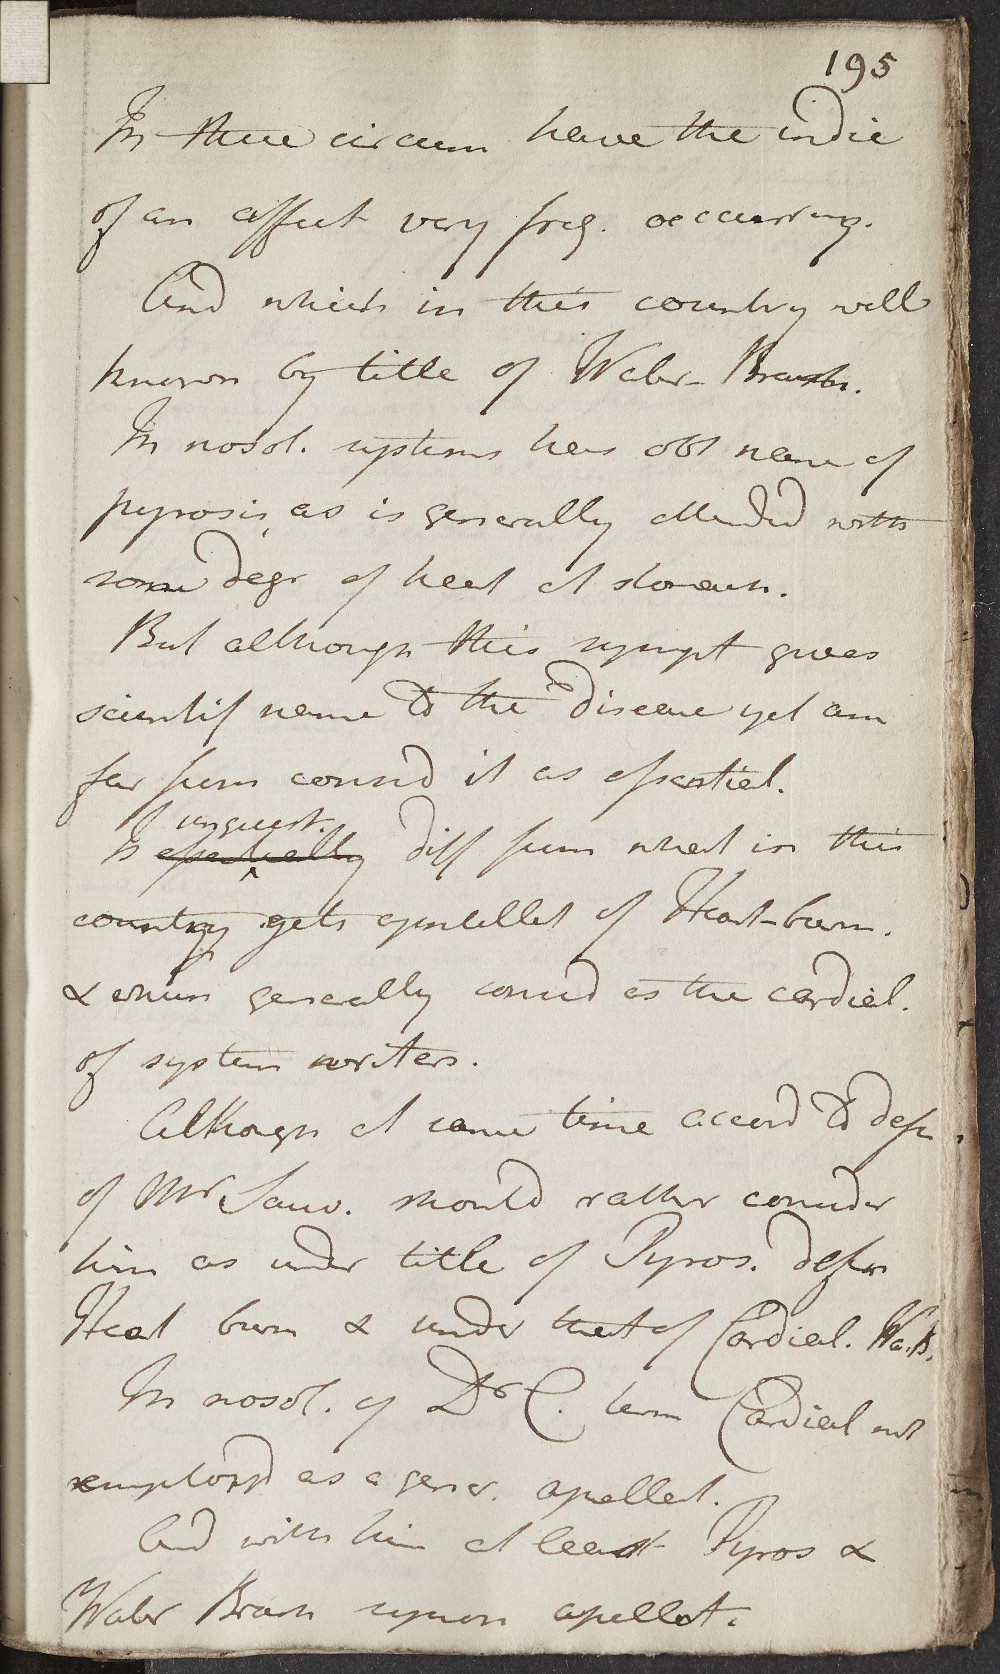 195
In these circum have the indic
of an affect very freq. occurring.
And which in this country well
known by title of Water-Brash.
In nosol. systems has obt name of
pyrosis, as is generally attended with
some degr of heat at stomach.
But although this sympt gives
scientif name to the disease yet am
far from consid it as essential.
unquest.
Is essentially diff from what in this
country gets apellat of Heart-burn.
& which generally consid as the cardial.
of system writers.
Although at same time accord to defin
of Mr Sauv. should rather consider
him as under title of Pyros. defin
Heart burn & under that of Cardial. Wa. B.
In nosol. of Dr C. term Cardial not
employd as a gener. apellat.
And with him at least Pyros &
Water Brash synon apellat.